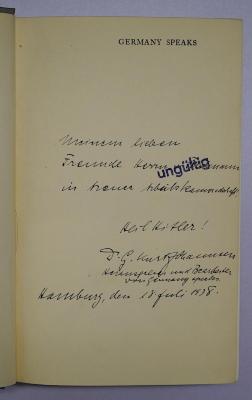 GERMANY SPEAKS
Meinem lieben
Freunde Herrn
ungültig
in treuer Arbeitskameradschaft
Heil Hitler!
Dr. G. Kurt Johannsen
Herausgeber und Bearbeiter
von Germany speaks
Hamburg, den 18 Juli 1938.